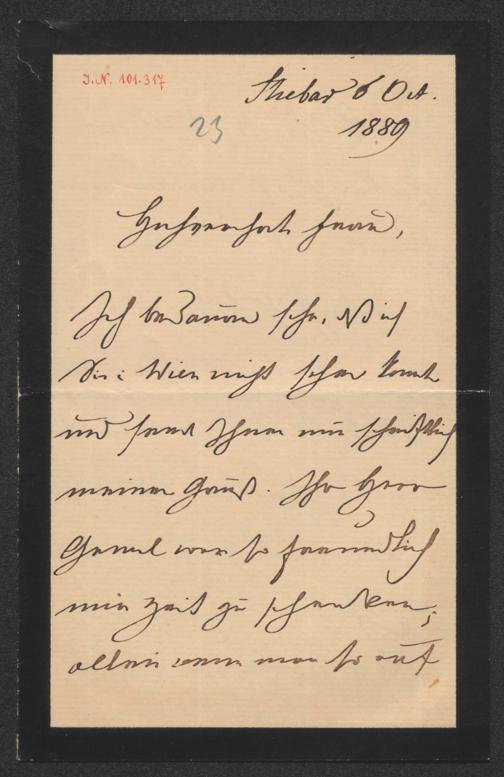 J.N. 101.317
Stiebar 6 Oct.
1889
23
Hochverehrte Frau,
Ich bedaure sehr, daß ich
Sie i. Wien nicht sehen konnte
und sende Ihnen nun schriftlich
meinen Gruß. Ihr Herr
Gemal war so freundlich
mir Zeit zu schenken;
allein wenn man so auf